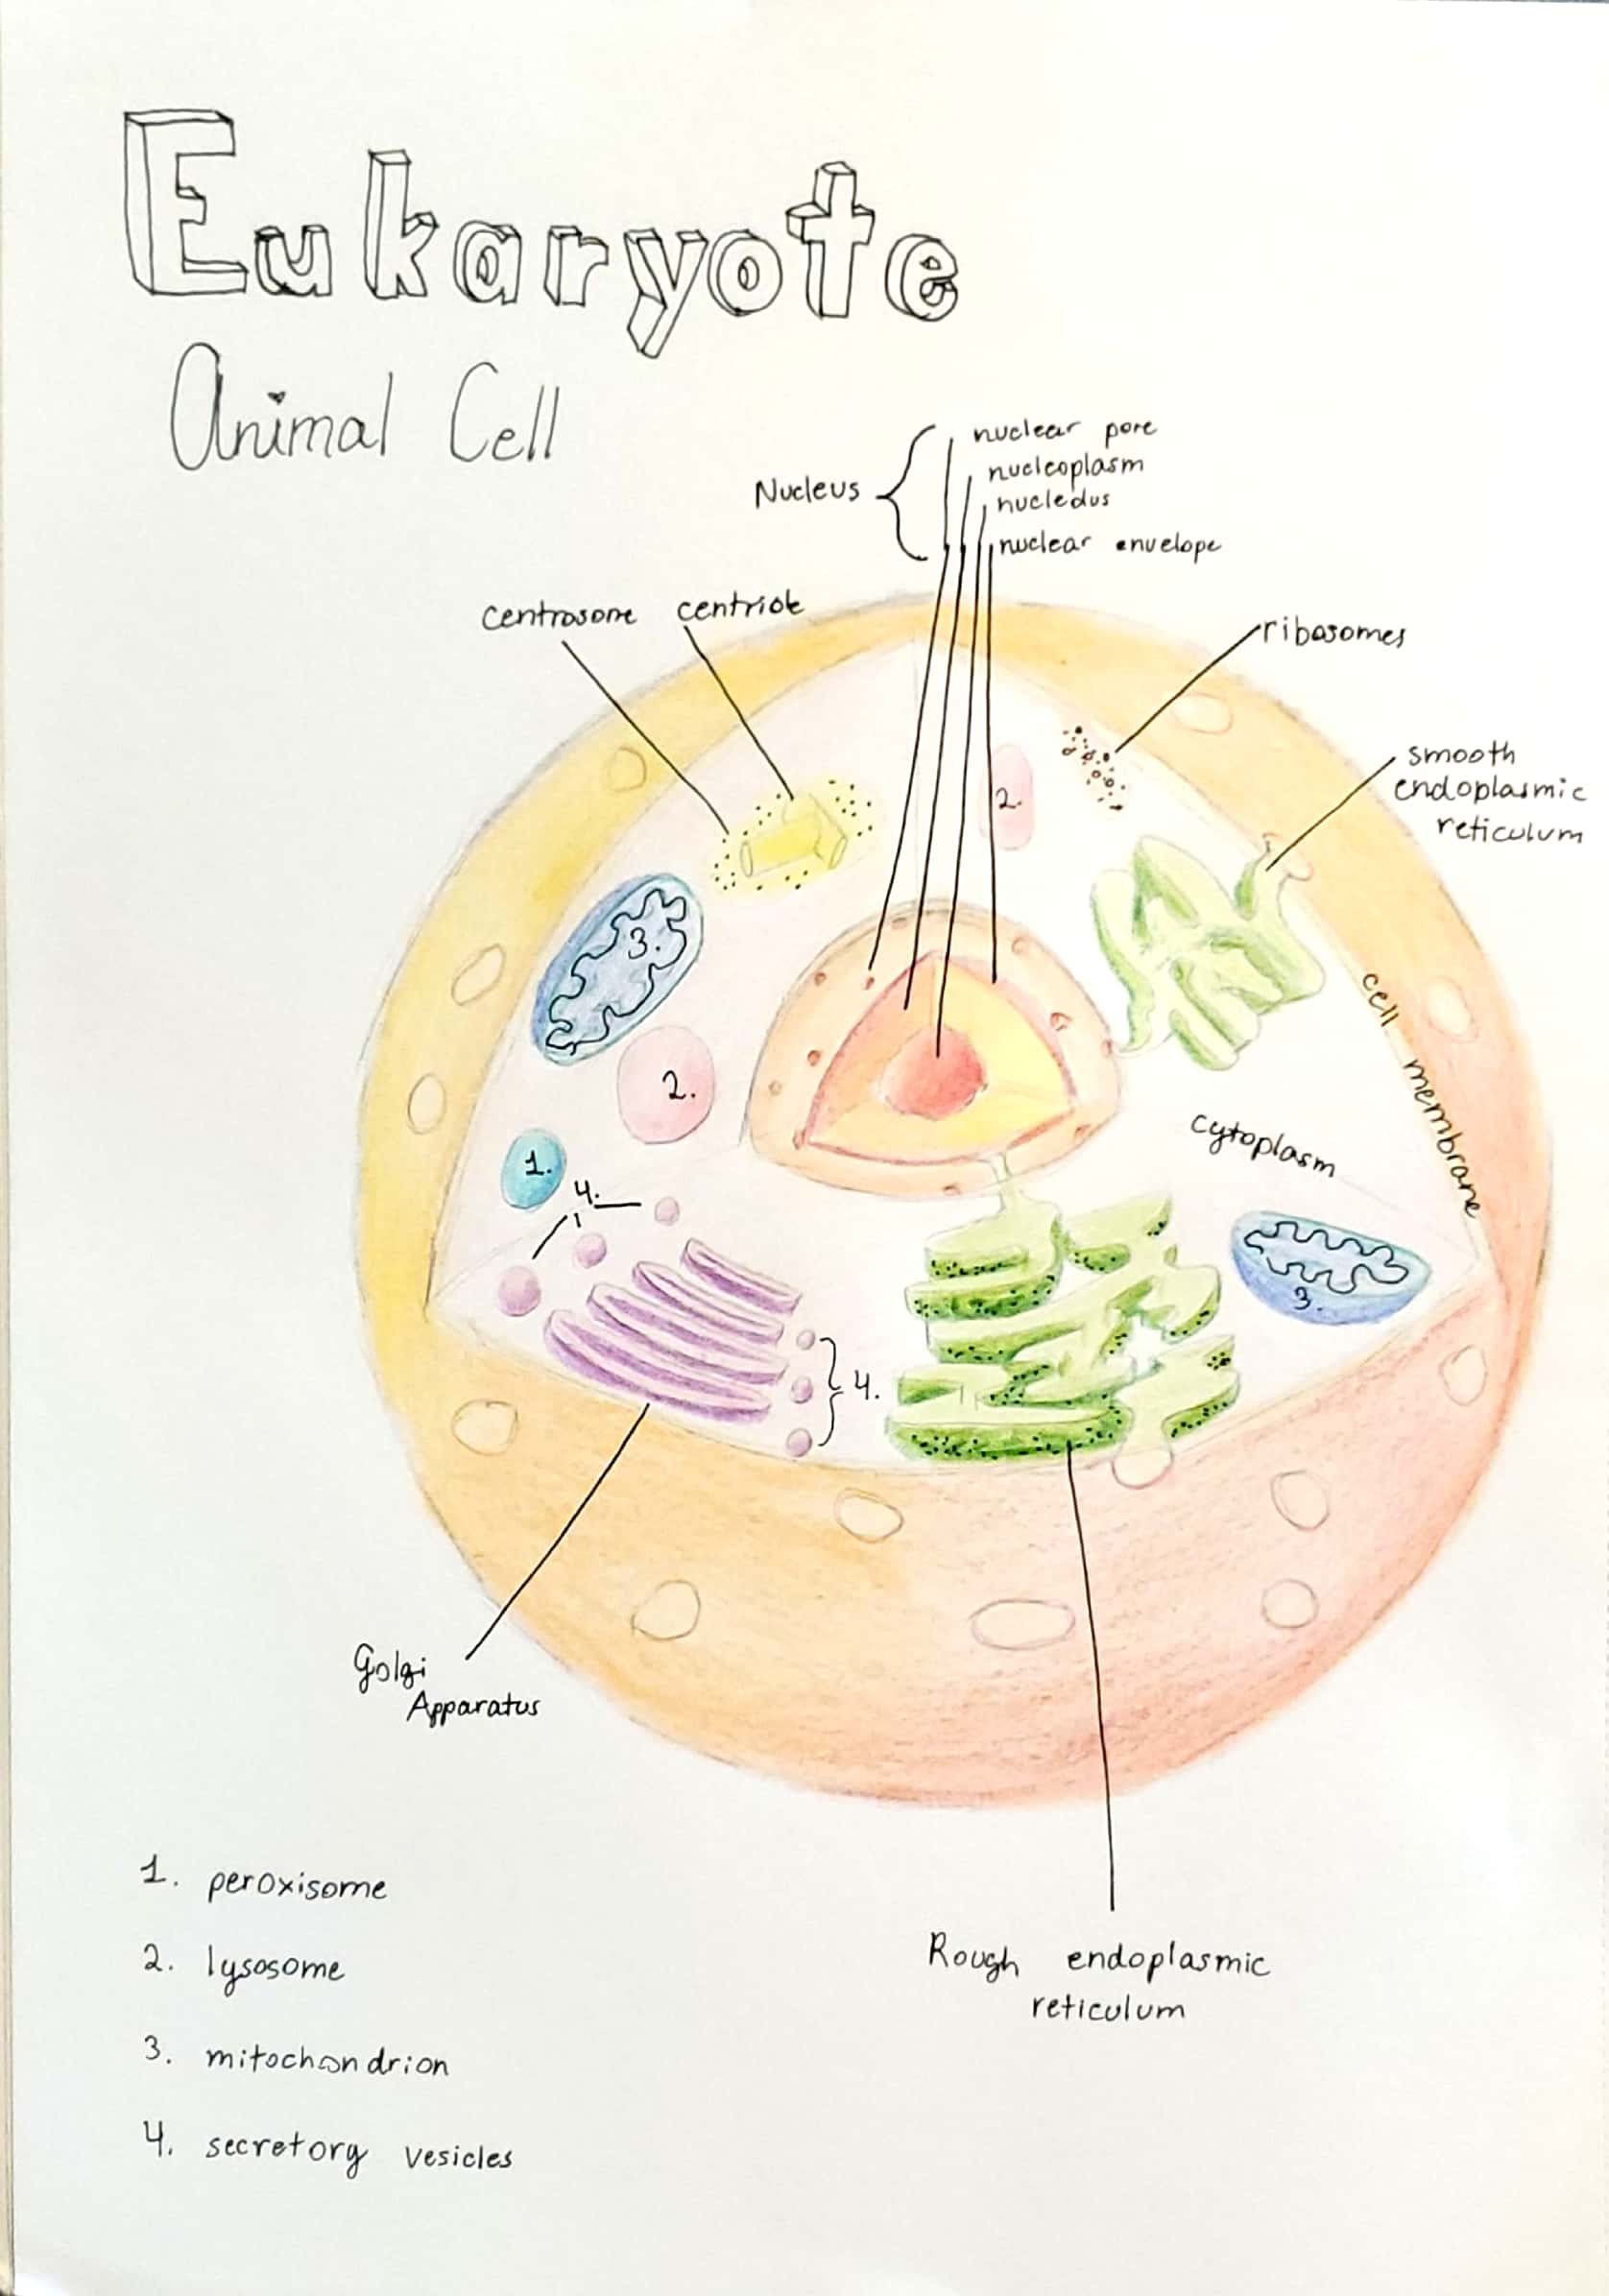 Eukaryote
Animal Cell
Nucleus
nuclear pore
nucleoplasm
nucleolus
nuclear envelope
centrosome
centriole
ribosomes
smooth
endoplasmic
reticulum
2.
3.
2.
cell membrane
cytoplasm
1.
4.
3.
4.
Golgi
Apparatus
Rough endoplasmic
reticulum
1. peroxisome
2. lysosome
3. mitochondrion
4. secretory vesicles